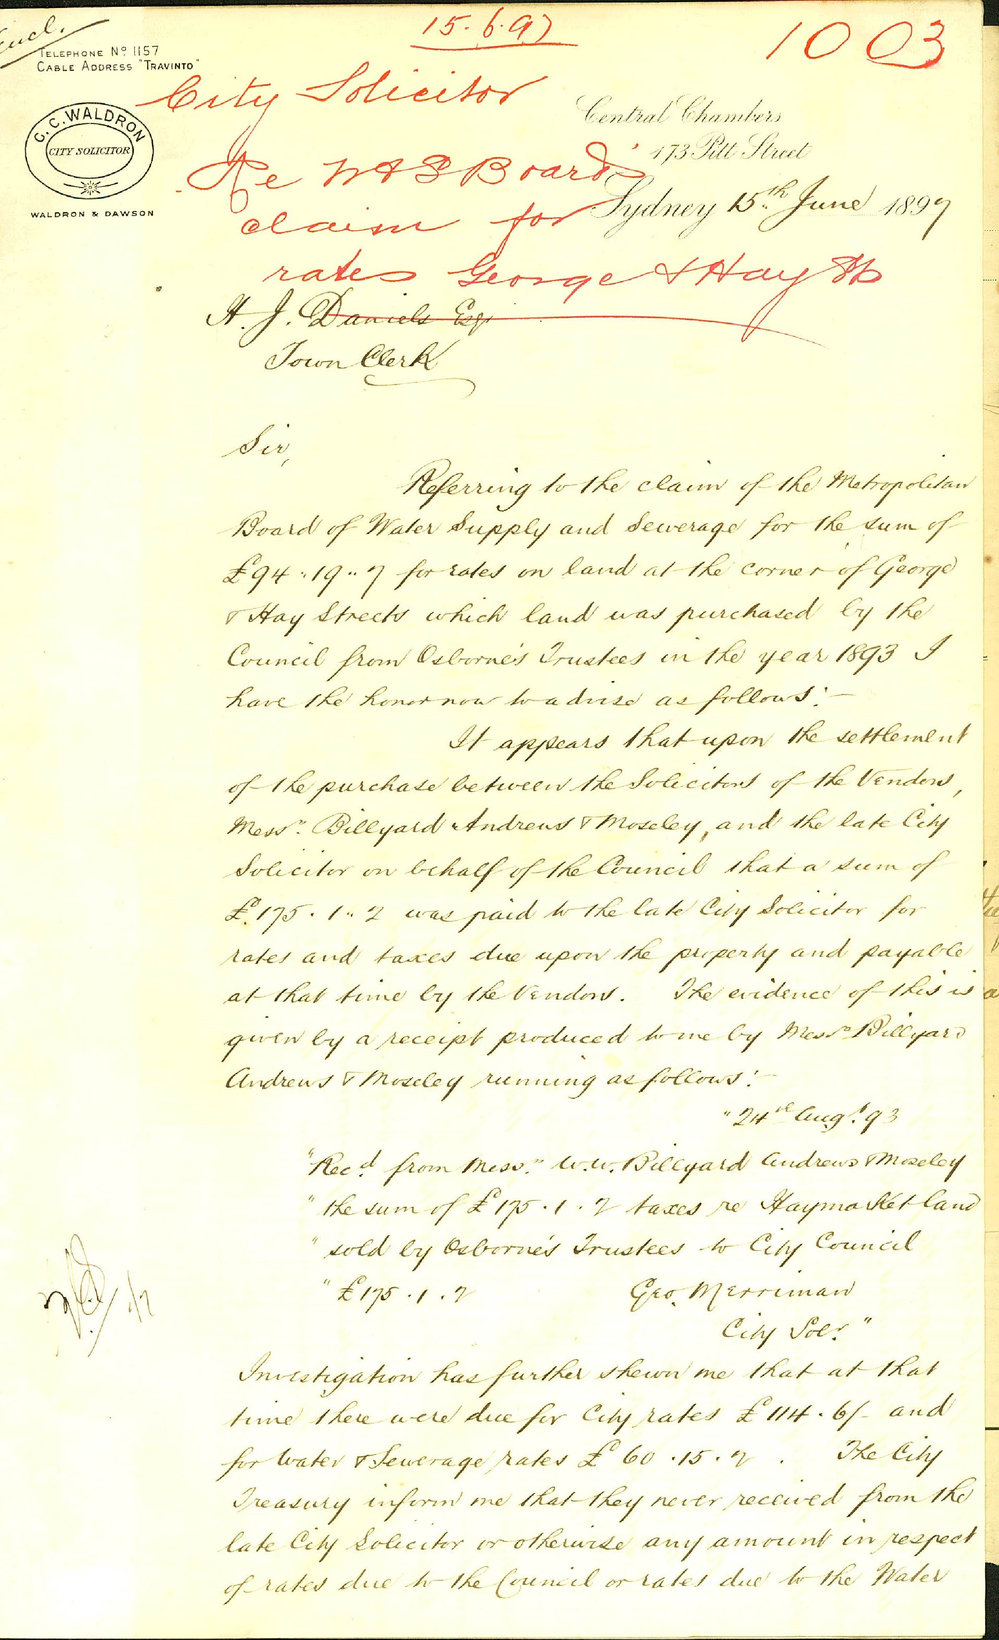 Encl.
15.6.97
1003
TELEPHONE No 1157
CABLE ADDRESS "TRAVINTO"
City Solicitor
G. C. WALDRON
CITY SOLICITOR
WALDRON & DAWSON
Central Chambers
173 Pitt Street
Re W & S Board's
Sydney 15th June 1897
claim for
rates George & Hay Sts
H. J. Daniels Esqr
Town Clerk
Sir,
Referring to the claim of the Metropolitan
Board of Water Supply and Sewerage for the sum of
£94..19..7 for rates on land at the corner of George
& Hay Streets which land was purchased by the
Council from Osborne's Trustees in the year 1893 I
have the honor now to advise as follows:—
It appears that upon the settlement
of the purchase between the Solicitors of the Vendors,
Messrs. Billyard Andrews & Moseley, and the late City
Solicitor on behalf of the Council that a sum of
£175.1..2 was paid to the late City Solicitor for
rates and taxes due upon the property and payable
at that time by the Vendors. The evidence of this is
given by a receipt produced to me by Messrs Billyard
Andrews & Moseley running as follows:—
"24th Augt. 93
"Recd. from Messrs. W.W. Billyard Andrews & Moseley
" the sum of £175.1.2 taxes re Haymarket land
" sold by Osborne's Trustees to City Council
" £175.1.2 Geo. Merriman
City Solr."
Investigation has further shewn me that at that
time there were due for City rates £114.6/- and
for Water & Sewerage rates £60.15.2. The City
Treasury inform me that they never received from the
late City Solicitor or otherwise any amount in respect
of rates due to the Council or rates due to the Water